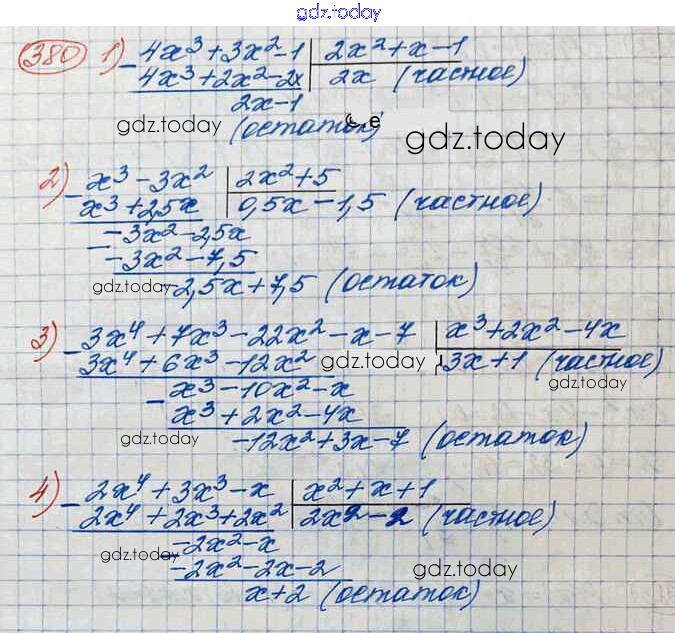 gdz.today
380 1) - 4x³ + 3x² - 1 | 2x² + x - 1
4x³ + 2x² - 2x | 2x (частное)
2x - 1
gdz.today (остаток) gdz.today
2) - x³ - 3x² | 2x² + 5
x³ + 2,5x | 0,5x - 1,5 (частное)
- -3x² - 2,5x
-3x² - 7,5
gdz.today -2,5x + 7,5 (остаток)
3) - 3x⁴ + 7x³ - 22x² - x - 7 | x³ + 2x² - 4x
3x⁴ + 6x³ - 12x² gdz.today 3x + 1 (частное)
- x³ - 10x² - x gdz.today
x³ + 2x² - 4x
gdz.today -12x² + 3x - 7 (остаток)
4) - 2x⁴ + 3x³ - x | x² + x + 1
2x⁴ + 2x³ + 2x² | 2x² - 2 (частное)
gdz.today -2x² - x
-2x² - 2x - 2 gdz.today
x + 2 (остаток)